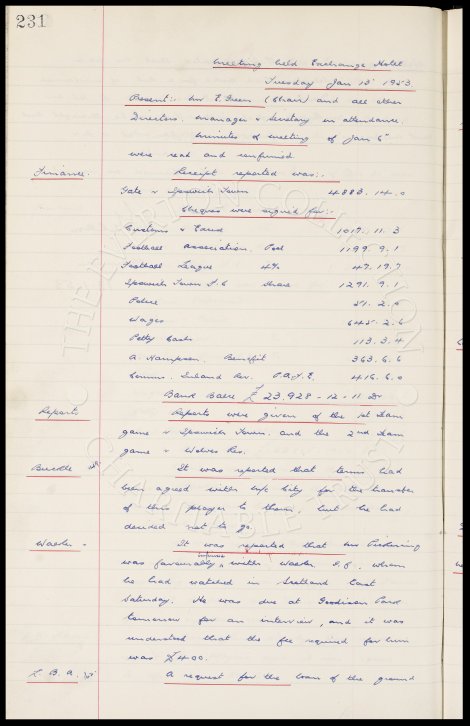 231
Meeting held Exchange Hotel
Tuesday Jan 13th 1953.
Present:- Mr E. Green (Chair) and all other
Directors. Manager & Secretary in attendance.
Minutes of meeting of Jan 6th
were read and confirmed.
Finance. Receipt reported was:-
Gate v Ipswich Town 4883. 14. 0
Cheques were signed for:-
Customs & Excise 1017. 11. 3
Football Association. Pool 1199. 9. 1
Football League 4% 47. 19. 7
Ipswich Town F.C Share 1291. 9. 1
Police 51. 2. 6
Wages 645. 2. 6
Petty Cash 113. 3. 4
A. Hampson. Benefit 363. 6. 6
Comms. Inland Rev. P.A.Y.E. 416. 6. 0
Bank Balce £ 23,928 - 12 - 11 Dr
Reports Reports were given of the 1st Team
game v Ipswich Town. and the 2nd Team
game v Wolves Res.
Buckle It was reported that terms had
been agreed with M/c City for the transfer
of this player to them, but he had
decided not to go.
It was reported that Mr Pickering
was favourably impressed with
he had watched in Scotland last
Saturday. He was due at Goodison Park
tomorrow for an interview, and it was
understood that the fee required for him
was £400.
L.B.A. A request for the loan of the ground
THE EVERTON COLLECTION
CHARITABLE TRUST